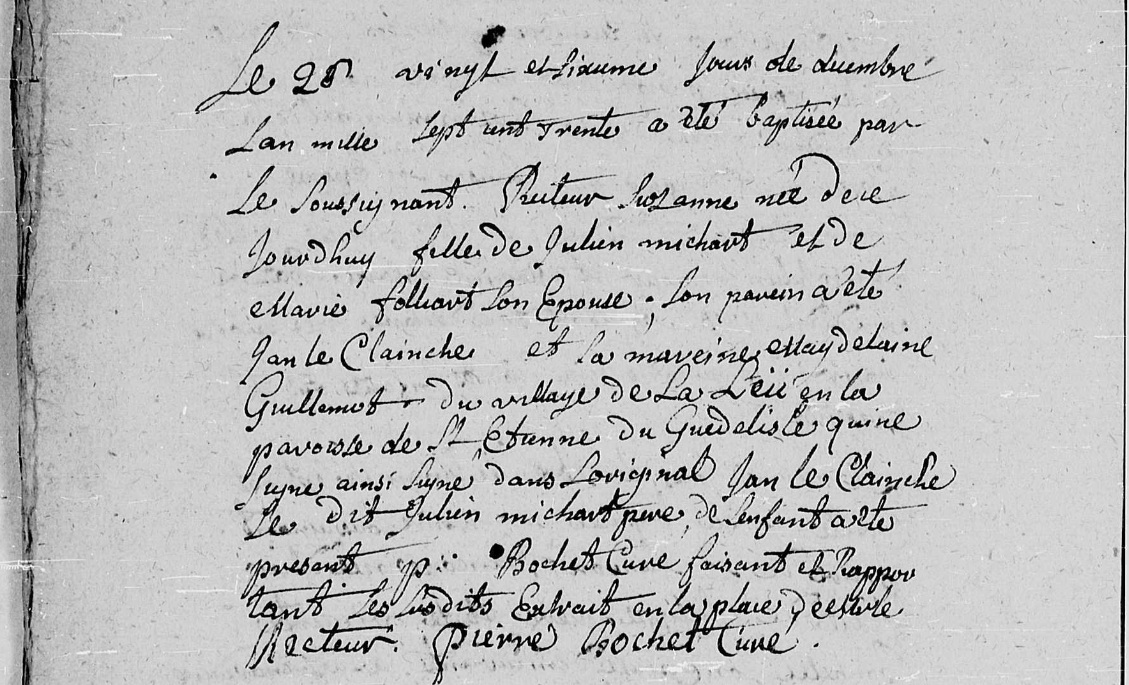 Le 26 vingt et sixieme Jour de decembre
Lan mille sept cent trente a été baptisée par
Le soussignant Recteur Suzanne née dece
Jourdhuy fille de Julien michart et de
Marie folliart son Epouse ; son parein a été
Jan le Clainche et la mareine Maydelaine
Guillemot du village de La en la
paroisse de St Etienne du Guedelisle quine
signe ainsi signé dans Loriginal Jan le Clainche
Le dit Julien michart pere de lenfant a ete
present p: Rochet Curé faisant et Rappor
tant Les susdits Extrait en la place
Recteur. pierre Rochet Curé.